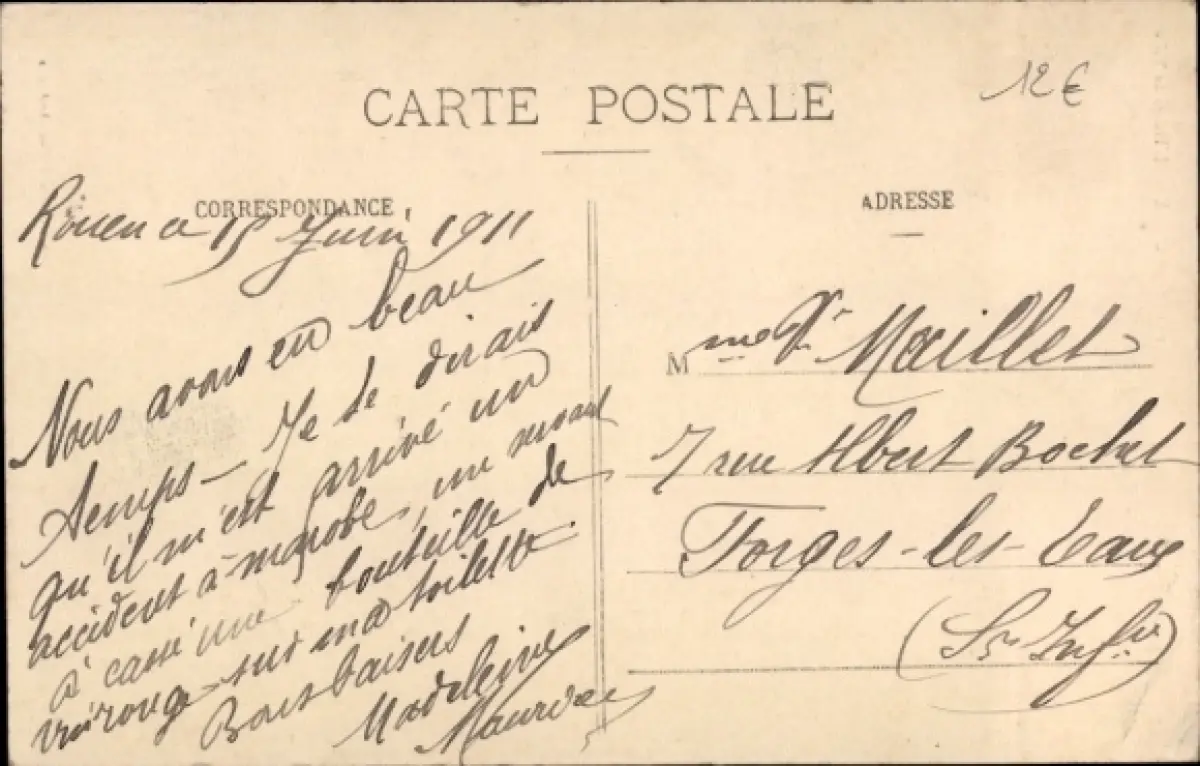 CARTE POSTALE
12€
CORRESPONDANCE
Rouen ce 15 Juin 1911
Nous avons eu beau
temps - Je te dirais
qu'il m'est arrivé un
accident à ma robe, un
à cassé une bouteille de
vin rouge sur ma toilette.
Bons baisers
Madeleine
ADRESSE
Mme Vve Maillet
7 rue Albert Bochet
Forges-les-Eaux
(Sne Infre)